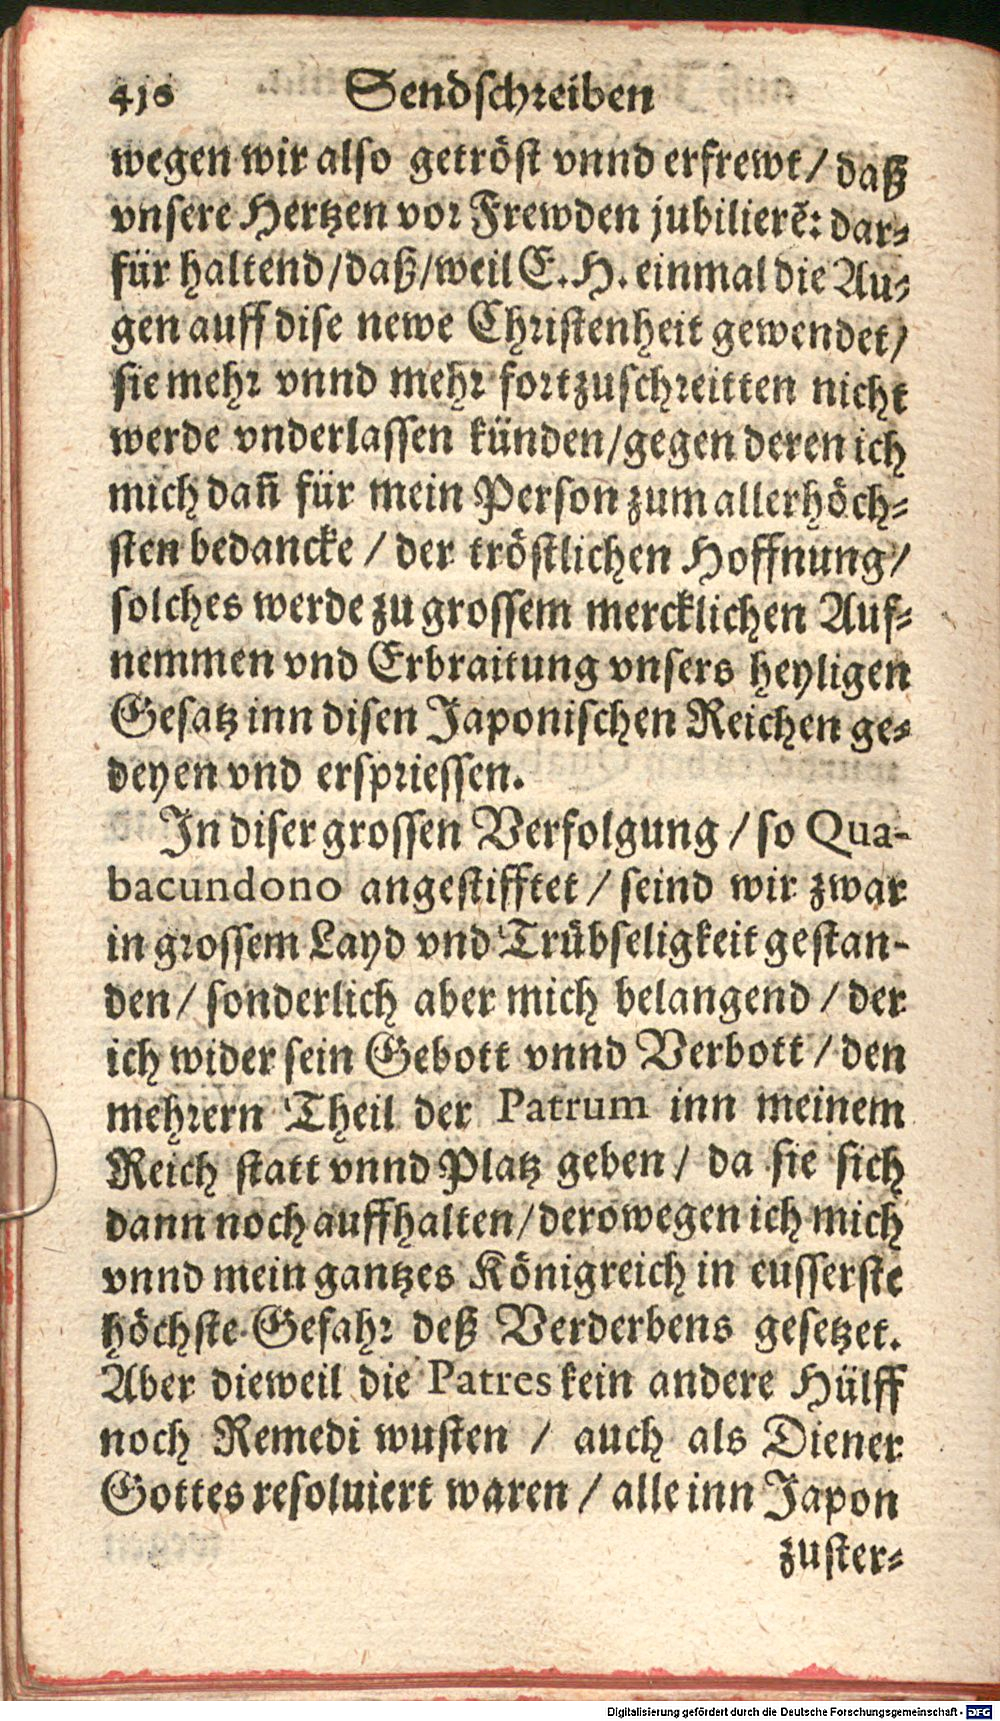 416 Sendschreiben
wegen wir also getröst vnnd erfrewt/ daß
vnsere Hertzen vor Frewden jubilierẽ: dar-
für haltend/daß/weil E. H. einmal die Au-
gen auff dise newe Christenheit gewendet/
sie mehr vnnd mehr fortzuschreitten nicht
werde vnderlassen künden/gegen deren ich
mich dañ für mein Person zum allerhöch-
sten bedancke / der tröstlichen Hoffnung/
solches werde zu grossem mercklichen Auf-
nemmen vnd Erbraitung vnsers heyligen
Gesatz inn disen Japonischen Reichen ge-
deyen vnd erspriessen.
In diser grossen Verfolgung / so Qua-
bacundono angestifftet / seind wir zwar
in grossem Layd vnd Trübseligkeit gestan-
den/ sonderlich aber mich belangend / der
ich wider sein Gebott vnnd Verbott / den
mehrern Theil der Patrum inn meinem
Reich statt vnnd Platz geben / da sie sich
dann noch auffhalten/derowegen ich mich
vnnd mein gantzes Königreich in eusserste
höchste Gefahr deß Verderbens gesetzet.
Aber dieweil die Patres kein andere Hülff
noch Remedi wusten / auch als Diener
Gottes resoluiert waren / alle inn Japon
zuster-
Digitalisierung gefördert durch die Deutsche Forschungsgemeinschaft - DFG